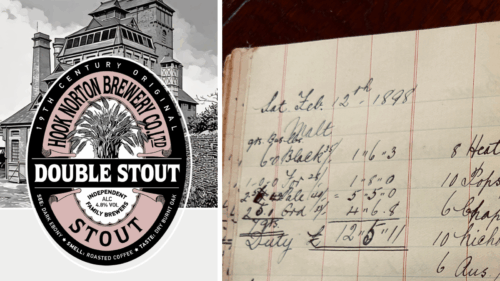 19TH CENTURY ORIGINAL
HOOK NORTON BREWERY CO. LTD
DOUBLE STOUT
INDEPENDENT
ALC
4.8% VOL
FAMILY BREWERS
STOUT
SEE: DARK EBONY • SMELL: ROASTED COFFEE • TASTE: DRY BURNT OAK
Sat Feb 12th 1898
Malt
6 Black 1" 6" 3
1" 8" 0
Pale 5" 5" 0
4" 6" 8
Duty £ 12" 5" 11
8 Heat
10 Pops
6 Chap
10 Nicho
6 Aus